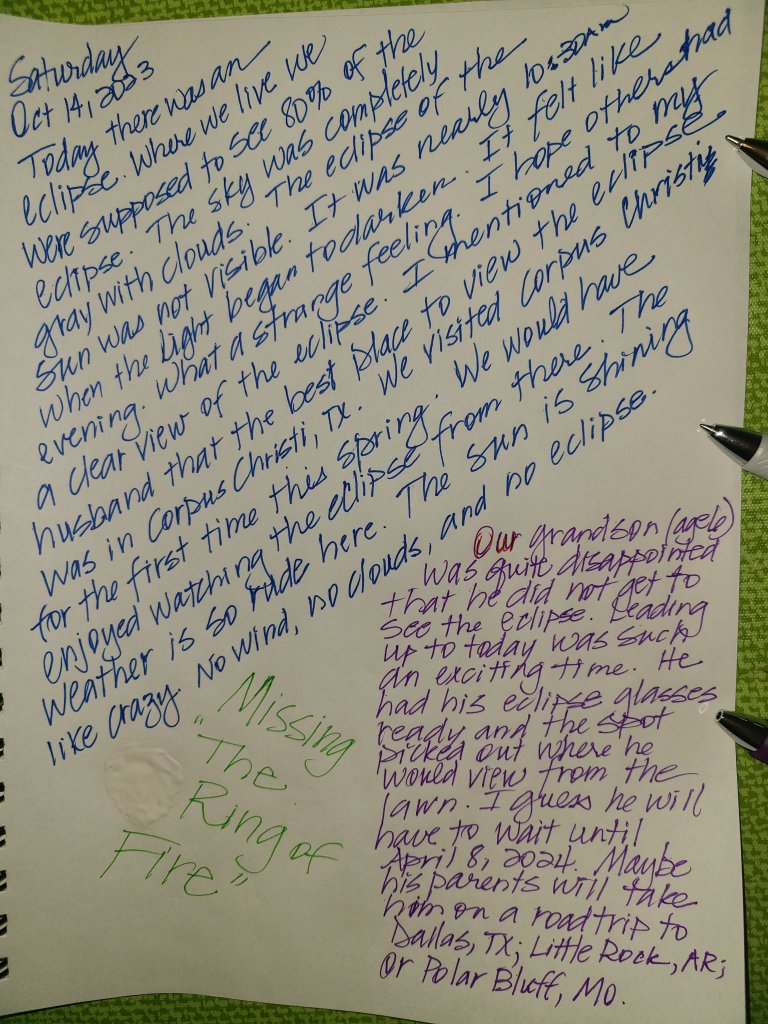 Saturday
Oct 14, 2023
Today there was an
eclipse. Where we live we
were supposed to see 80% of the
eclipse. The sky was completely
gray with clouds. The eclipse of the
sun was not visible. It was nearly 10:30Am
when the light began to darken. It felt like
evening. What a strange feeling. I hope others had
a clear view of the eclipse. I mentioned to my
husband that the best place to view the eclipse
was in Corpus Christi, TX. We visited Corpus Christi
for the first time this spring. We would have
enjoyed watching the eclipse from there. The
weather is so rude here. The sun is shining
like crazy. No wind, no clouds, and no eclipse.
Our grandson (age 6)
was quite disappointed
that he did not get to
see the eclipse. Leading
up to today was such
an exciting time. He
had his eclipse glasses
ready and the spot
picked out where he
would view from the
lawn. I guess he will
have to wait until
April 8, 2024. Maybe
his parents will take
him on a roadtrip to
Dallas, TX; Little Rock, AR;
or Polar Bluff, Mo.
Missing
"The
Ring of
Fire"